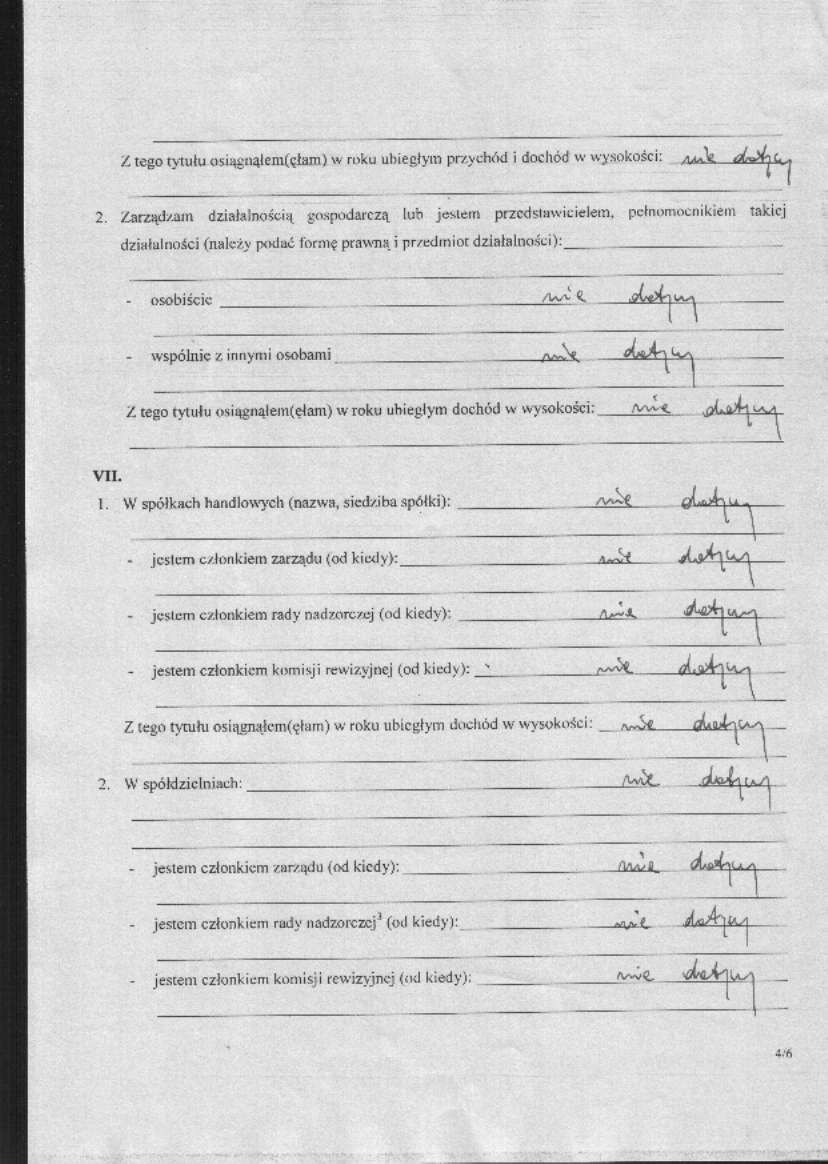 Z tego tytułu osiągnąłem(ęłam) w roku ubiegłym przychód i dochód w wysokości: nie dotyczy
2. Zarządzam działalnością gospodarczą lub jestem przedstawicielem, pełnomocnikiem takiej
działalności (należy podać formę prawną i przedmiot działalności):
- osobiście nie dotyczy
- wspólnie z innymi osobami nie dotyczy
Z tego tytułu osiągnąłem(ęłam) w roku ubiegłym dochód w wysokości: nie dotyczy
VII.
1. W spółkach handlowych (nazwa, siedziba spółki): nie dotyczy
- jestem członkiem zarządu (od kiedy): nie dotyczy
- jestem członkiem rady nadzorczej (od kiedy): nie dotyczy
- jestem członkiem komisji rewizyjnej (od kiedy): nie dotyczy
Z tego tytułu osiągnąłem(ęłam) w roku ubiegłym dochód w wysokości: nie dotyczy
2. W spółdzielniach: nie dotyczy
- jestem członkiem zarządu (od kiedy): nie dotyczy
- jestem członkiem rady nadzorczej³ (od kiedy): nie dotyczy
- jestem członkiem komisji rewizyjnej (od kiedy): nie dotyczy
4/6